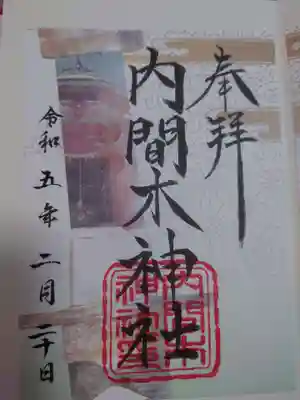 奉拝
内間木神社
令和五年二月二十日
内間木神社